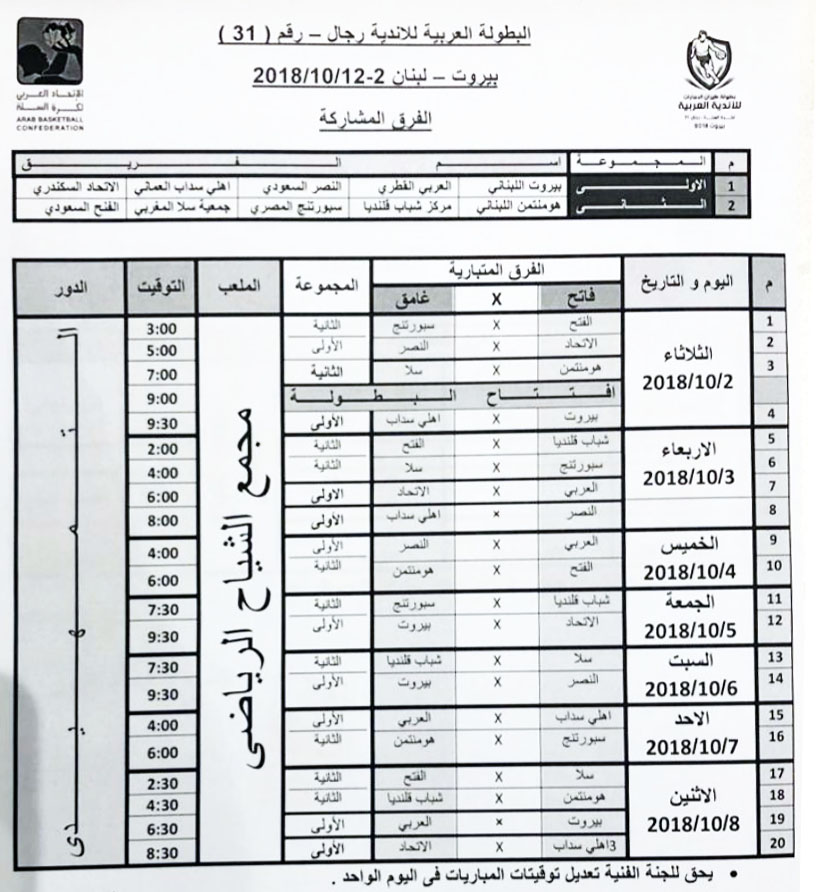 البطولة العربية للاندية رجال – رقم ( 31 )
بيروت – لبنان 2-2018/10/12
الفرق المشاركة
الإتحاد العربي
لكرة السلة
ARAB BASKETBALL
CONFEDERATION
للأندية العربية
بيروت 2018
م المجموعة اسم الفريق
1 الاولى بيروت اللبناني العربي القطري النصر السعودي اهلي سداب العماني الاتحاد السكندري
2 الثانى هومنتمن اللبناني مركز شباب قلنديا سبورتنج المصري جمعية سلا المغربي الفتح السعودي
م اليوم و التاريخ الفرق المتبارية المجموعة الملعب التوقيت الدور
فاتح X غامق
مجمع الشياح الرياضى
التمهيدى
1 الثلاثاء 2018/10/2 الفتح X سبورتنج الثانية 3:00
2 الاتحاد X النصر الأولى 5:00
3 هومنتمن X سلا الثانية 7:00
افتتاح البطولة 9:00
4 بيروت X اهلي سداب الأولى 9:30
5 الاربعاء 2018/10/3 شباب قلنديا X الفتح الثانية 2:00
6 سبورتنج X سلا الثانية 4:00
7 العربي X الاتحاد الاولى 6:00
8 النصر × اهلي سداب الأولى 8:00
9 الخميس 2018/10/4 العربي X النصر الأولى 4:00
10 الفتح X هومنتمن الثانية 6:00
11 الجمعة 2018/10/5 شباب قلنديا X سبورتنج الثانية 7:30
12 الاتحاد X بيروت الأولى 9:30
13 السبت 2018/10/6 سلا X شباب قلنديا الثانية 7:30
14 النصر X بيروت الأولى 9:30
15 الاحد 2018/10/7 اهلي سداب X العربي الأولى 4:00
16 سبورتنج X هومنتمن الثانية 6:00
17 الاثنين 2018/10/8 سلا X الفتح الثانية 2:30
18 هومنتمن X شباب قلنديا الثانية 4:30
19 بيروت × العربي الأولى 6:30
20 3اهلي سداب X الاتحاد الأولى 8:30
• يحق للجنة الفنية تعديل توقيتات المباريات فى اليوم الواحد .